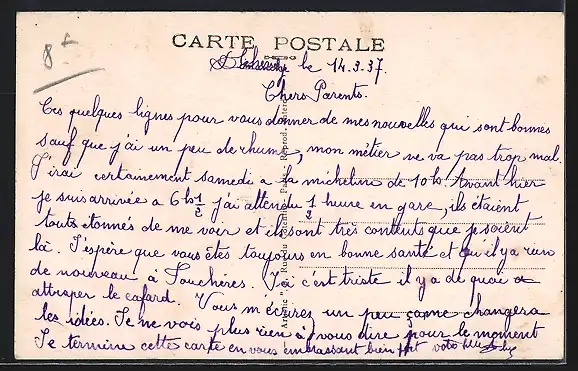 8 F
CARTE POSTALE
le 14.3.37.
Chers Parents.
Ces quelques lignes pour vous donner de mes nouvelles qui sont bonnes
sauf que j'ai un peu de rhume, mon métier ne va pas trop mal.
J'irai certainement samedi a la micheline de 10h. Avant hier
je suis arrivée a 6h 1/2 j'ai attendu 1/2 heure en gare, ils étaient
touts étonnés de me voir et ils sont très contents que je soient
là. J'espère que vous êtes toujours en bonne santé et qu'il y a rien
de nouveau à Souchères. Ici c'est triste il y a de quoi
attraper le cafard. Vous m'écrires un peu çame changera
les idées. Je ne vois plus rien à vous dire pour le moment
Je termine cette carte en vous embrassant bien fort